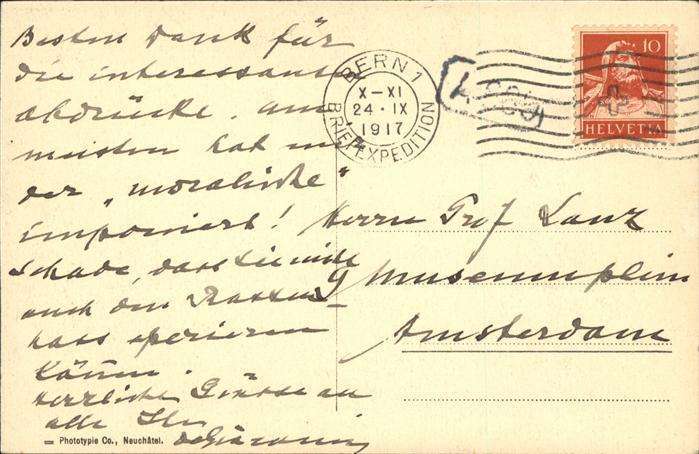 Besten Dank für
die interessanten
abdrücke. am
meisten hat mir
der „moralische“
imponiert!
Schade, dass Sie nicht
auch den Rassen
hass operieren
können.
Herzliche Grüsse an
alle Ihr
Phototypie Co., Neuchâtel.
BERN 1
X-XI
24·IX
1917
BRIEFEXPEDITION
10
HELVETIA
Herrn Prof Lanz
9 Museumplein
Amsterdam